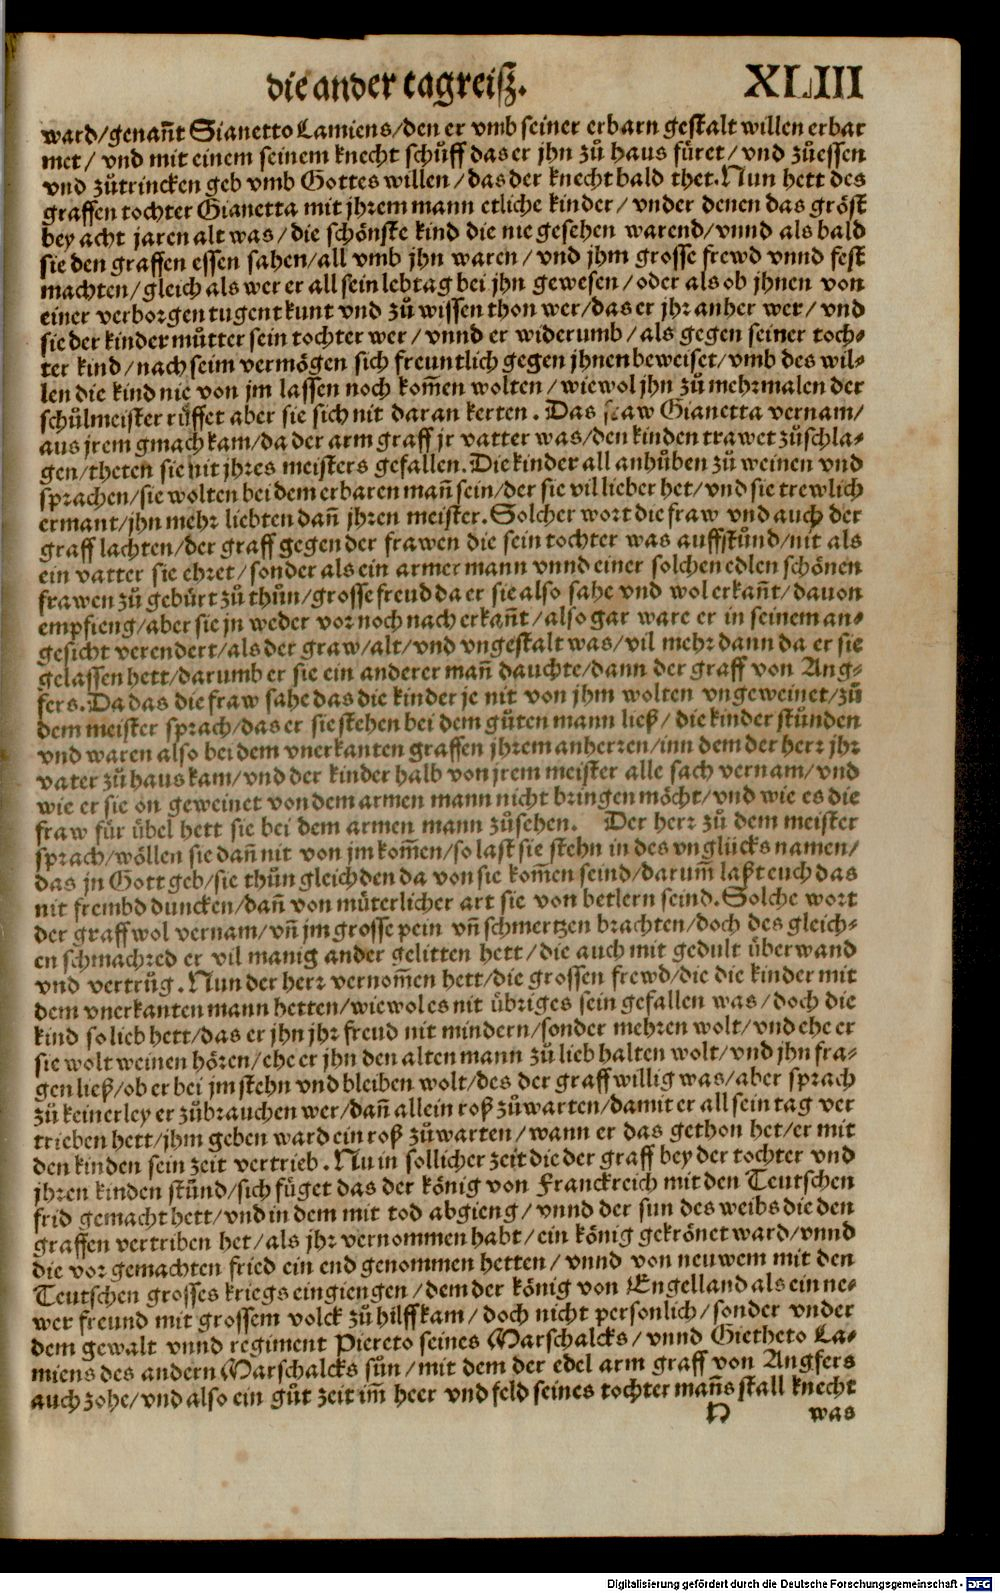 die ander tagreisz. XLIII
ward/genañt Sianetto Lamiens/den er vmb seiner erbarn gestalt willen erbar
met/ vnd mit einem seinem knecht schůff das er jhn zů haus füret/ vnd zůessen
vnd zůtrincken geb vmb Gottes willen/das der knecht bald thet. Nun hett des
graffen tochter Gianetta mit jhrem mann etliche kinder/ vnder denen das gröst
bey acht jaren alt was/ die schönste kind die nie gesehen warend/vnnd als bald
sie den graffen essen sahen/all vmb jhn waren/ vnd jhm grosse frewd vnnd fest
machten/gleich als wer er all sein lebtag bei jhn gewesen/ oder als ob jhnen von
einer verborgen tugent kunt vnd zů wissen thon wer/das er jhr anher wer/ vnd
sie der kinder můtter sein tochter wer/ vnnd er widerumb/ als gegen seiner toch-
ter kind/ nach seim vermögen sich freuntlich gegen jhnen beweiset/vmb des wil-
len die kind nie von jm lassen noch kom̃en wolten/ wiewol jhn zů mehrmalen der
schůlmeister růffet aber sie sich nit daran kerten. Das fraw Gianetta vernam/
aus jrem gmach kam/da der arm graff jr vatter was/den kinden trawet zůschla-
gen/theten sie nit jhres meisters gefallen. Die kinder all anhůben zů weinen vnd
sprachen/sie wolten bei dem erbaren mañ sein/der sie vil lieber het/vnd sie trewlich
ermant/jhn mehr liebten dañ jhren meister. Solcher wort die fraw vnd auch der
graff lachten/der graff gegen der frawen die sein tochter was auffstůnd/nit als
ein vatter sie ehret/ sonder als ein armer mann vnnd einer solchen edlen schönen
frawen zů gebürt zů thůn/grosse freud da er sie also sahe vnd wol erkañt/ dauon
empfieng/aber sie jn weder vor noch nach erkañt/also gar ware er in seinem an-
gesicht verendert/als der graw/alt/vnd vngestalt was/vil mehr dann da er sie
gelassen hett/darumb er sie ein anderer mañ dauchte/dann der graff von Ang-
fers. Da das die fraw sahe das die kinder je nit von jhm wolten vngeweinet/zů
dem meister sprach/das er sie stehen bei dem gůten mann ließ/ die kinder stůnden
vnd waren also bei dem vnerkanten graffen jhrem anherren/inn dem der herr jhr
vater zů haus kam/vnd der kinder halb von jrem meister alle sach vernam/vnd
wie er sie on geweinet von dem armen mann nicht bringen möcht/vnd wie es die
fraw für übel hett sie bei dem armen mann zůsehen. Der herr zů dem meister
sprach/wöllen sie dañ nit von jm kom̃en/so last sie stehn in des vnglücks namen/
das jn Gott geb/sie thůn gleich den da von sie kom̃en seind/darum̃ laßt euch das
nit frembd duncken/dañ von můterlicher art sie von betlern seind. Solche wort
der graff wol vernam/vñ jm grosse pein vñ schmertzen brachten/doch des gleich-
en schmachred er vil manig ander gelitten hett/die auch mit gedult überwand
vnd vertrůg. Nun der herr vernom̃en hett/die grossen frewd/die die kinder mit
dem vnerkanten mann hetten/wiewol es nit übriges sein gefallen was/doch die
kind so lieb hett/das er jhn jhr freud nit mindern/sonder mehren wolt/vnd ehe er
sie wolt weinen hören/ehe er jhn den alten mann zů lieb halten wolt/vnd jhn fra-
gen ließ/ob er bei jm stehn vnd bleiben wolt/des der graff willig was/aber sprach
zů keinerley er zůbrauchen wer/dañ allein roß zůwarten/damit er all sein tag ver
trieben hett/jhm geben ward ein roß zůwarten/wann er das gethon het/er mit
den kinden sein zeit vertrieb. Nu in sollicher zeit die der graff bey der tochter vnd
jhren kinden stůnd/sich füget das der könig von Franckreich mit den Teutschen
frid gemacht hett/vnd in dem mit tod abgieng/vnnd der sun des weibs die den
graffen vertriben het/als jhr vernommen habt/ein könig gekrönet ward/vnnd
die vor gemachten fried ein end genommen hetten/ vnnd von neuwem mit den
Teutschen grosses kriegs eingiengen/dem der könig von Engelland als ein ne-
wer freund mit grossem volck zů hilff kam/ doch nicht personlich/sonder vnder
dem gewalt vnnd regiment Piereto seines Marschalcks/ vnnd Gietheto La-
miens des andern Marschalcks sůn/mit dem der edel arm graff von Angfers
auch zohe/vnd also ein gůt zeit im̃ heer vnd feld seines tochter mañs stall knecht
H was
Digitalisierung gefördert durch die Deutsche Forschungsgemeinschaft - DFG